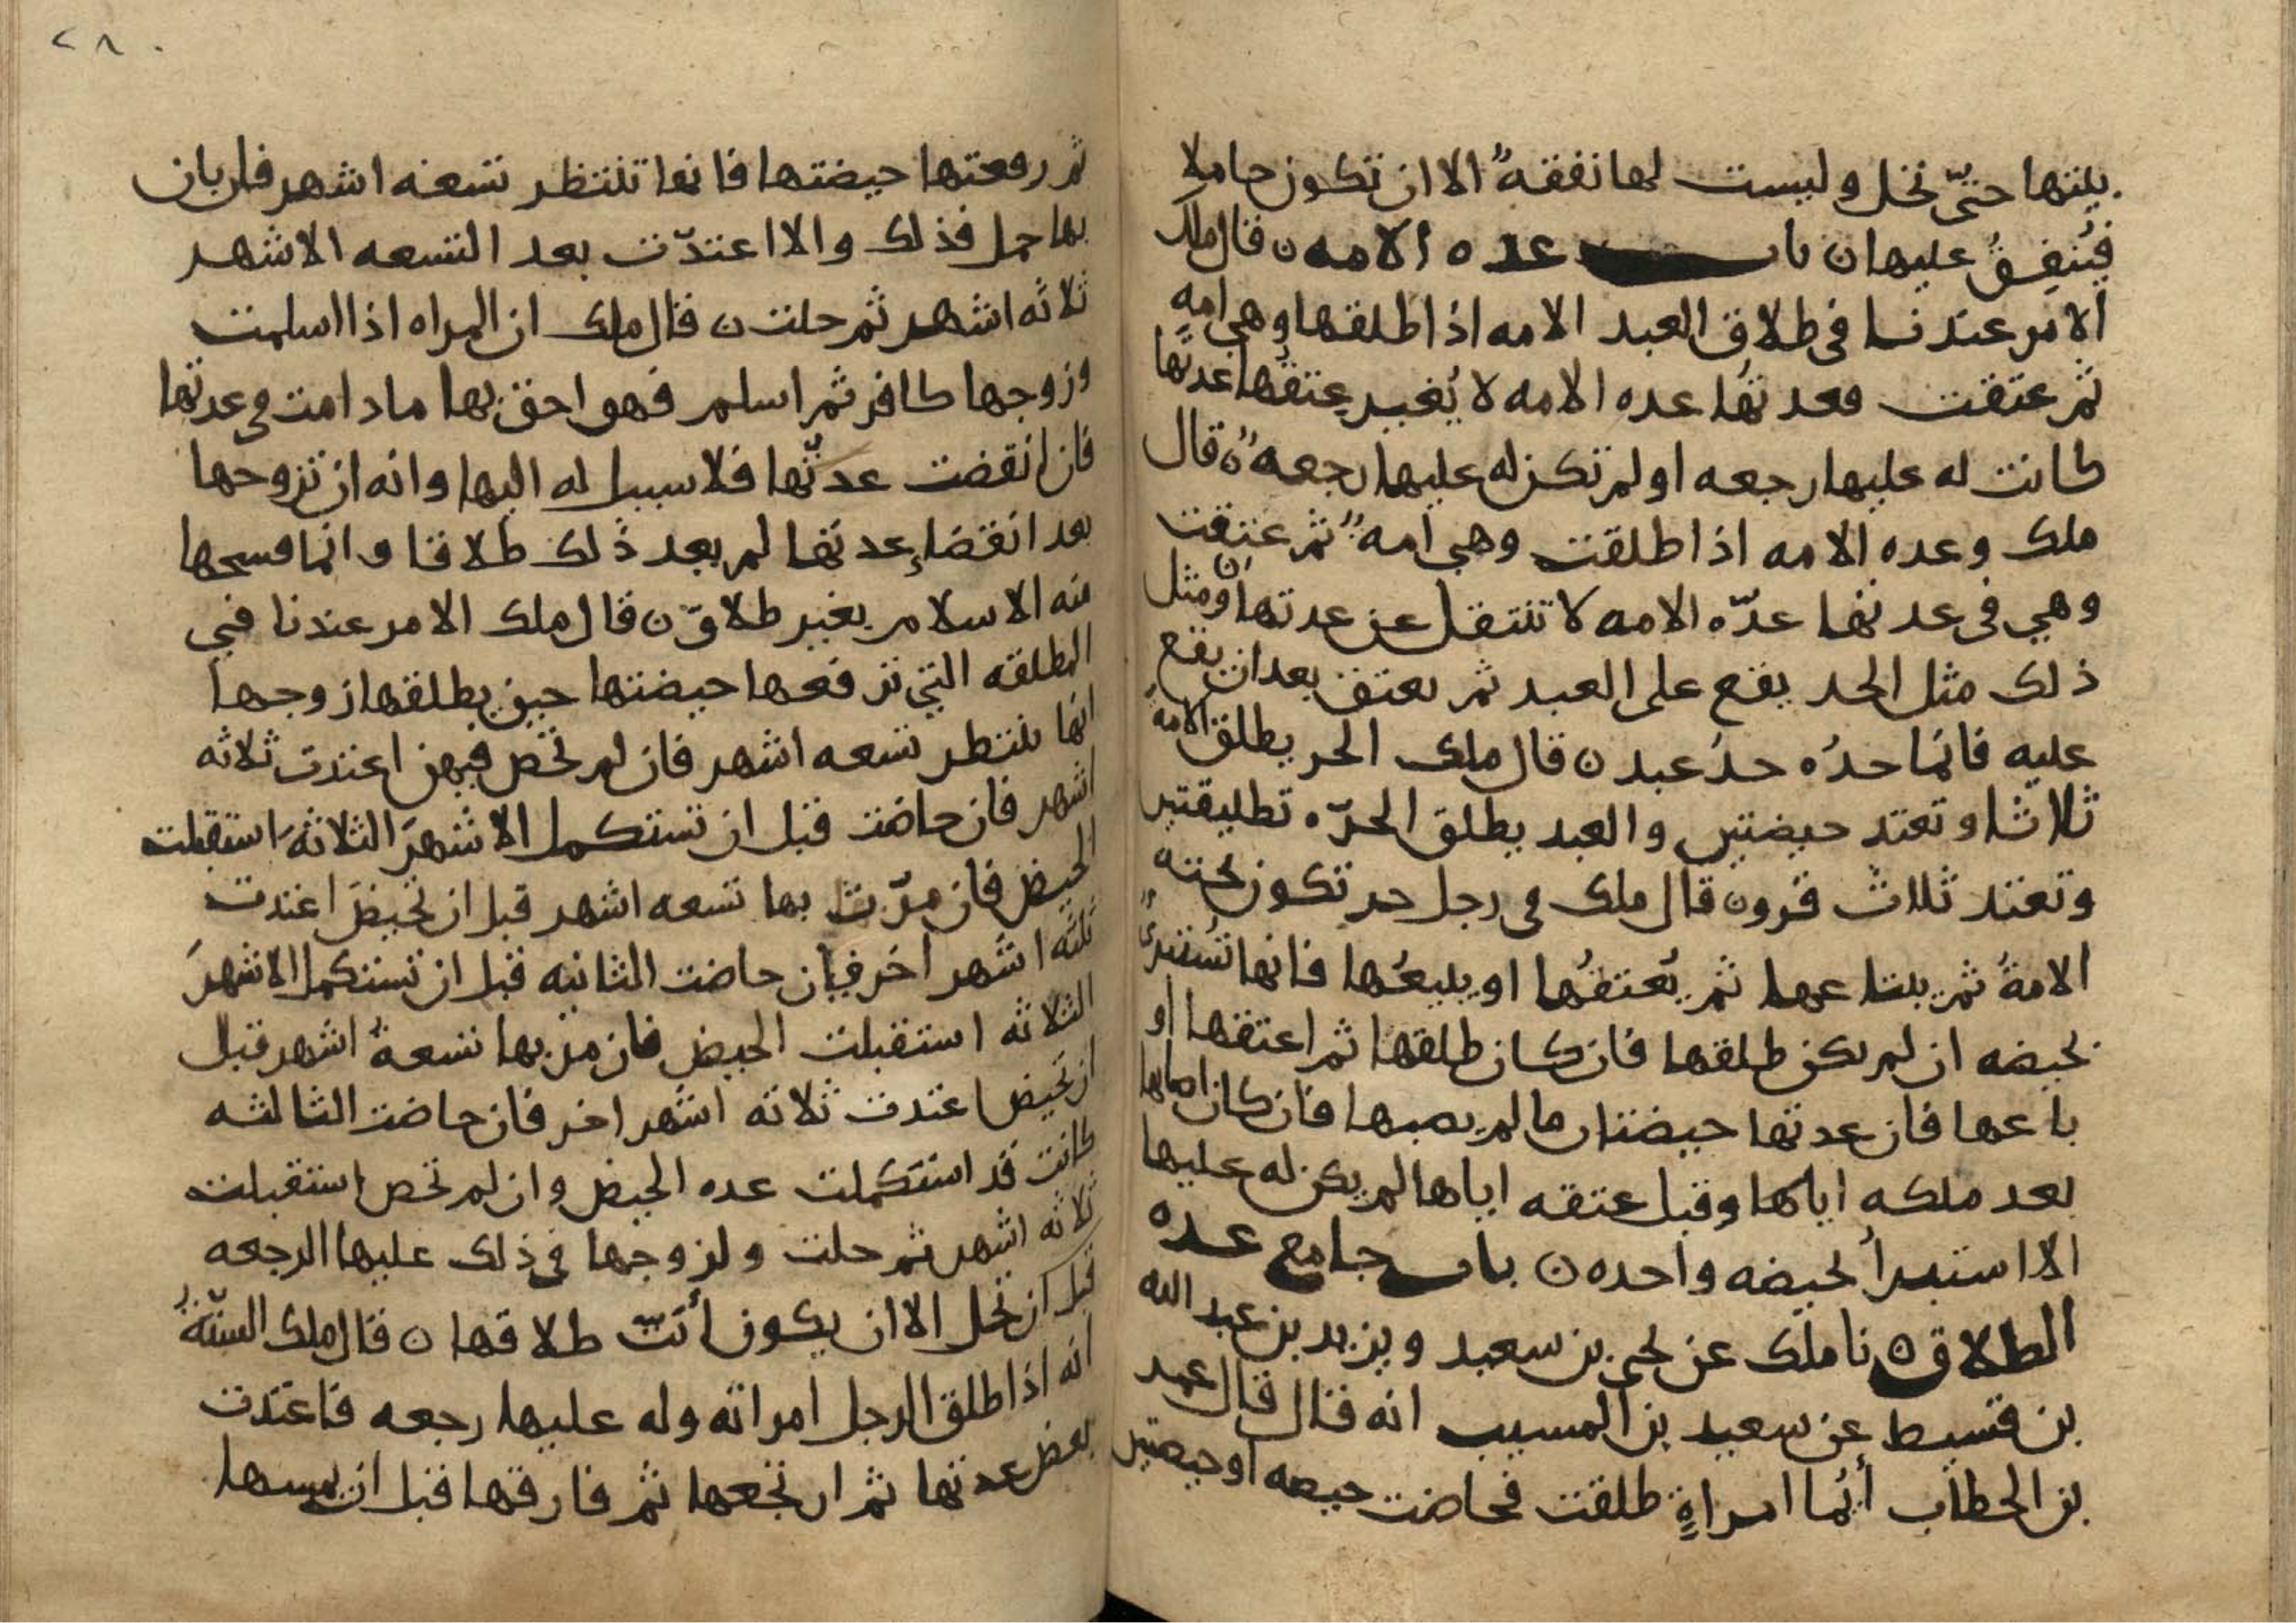 بيتها حتى تحل وليست لها نفقةٌ الا ان تكون حاملا
فيُنفِقُ عليها ن باب عده الامه ن قال ملك
الامر عندنا في طلاق العبد الامه اذا طلقها وهي امهٍ
ثم عتقت فعدتها عده الامه لا يُغير عتقُها عدتَها
كانت له عليها رجعه او لم تكن له عليها رجعهٌ ن قال
ملك وعده الامه اذا طلقت وهي امهٌ ثم عتقت
وهي في عدتها عدّه الامه لا تنتقل عن عدتها ن ومثل
ذلك مثل الحد يقع على العبد ثم يعتق بعد ان يقع
عليه فانما حدُه حدُ عبد ن قال ملك الحر يطلق الامةَ
ثلاثا وتعتد حيضتين والعبد يطلق الحرّه تطليقتين
وتعتد ثلاث قرون قال ملك في رجل حر تكون تحته
الامةُ ثم يبتاعها ثم يُعتقُها او يبيعُها فانها تُستبرئُ
بحيضه ان لم يكن طلقها فان كان طلقها ثم اعتقها او
باعها فان عدتها حيضتان ما لم يصبها فان كان اصابها
بعد ملكه اياها وقبل عتقه اياها لم يكن له عليها
الا استبراُ بحيضه واحده ن باب جامع عده
الطلاق ن نا ملك عن يحيى بن سعيد ويزيد بن عبد الله
بن قسيط عن سعيد بن المسيب انه قال قال عمر
بن الخطاب أيُما امراةٍ طلقت فحاضت حيضه او حيضتين
٢٨٠
ثم رفعتها حيضتها فانها تنتظر تسعه اشهر فان بان
بها حمل فذلك والا اعتدّت بعد التسعه الاشهر
ثلاثه اشهر ثم حلت ن قال ملك ان المراه اذا اسلمت
وزوجها كافر ثم اسلم فهو احق بها ما دامت في عدتها
فان انقضت عدتّها فلا سبيل له اليها وانه ان تزوجها
بعد انقضاءِ عدتها لم يعد ذلك طلاقا وانما فسحها
منه الاسلام بغير طلاقّ ن قال ملك الامر عندنا في
المطلقه التي ترفعها حيضتها حين يطلقها زوجها
انها تنتظر تسعه اشهر فان لم تحض فيهن اعتدت ثلاثه
اشهر فان حاضت قبل ان تستكمل الاشهرَ الثلاثهَ استقبلت
الحيض فان مرّت بها تسعه اشهر قبل ان تحيضَ اعتدت
ثلثه اشهر اخر فإن حاضت الثانيه قبل ان تستكمل الاشهرَ
الثلاثه استقبلت الحيض فان مر بها تسعةُ اشهر قبل
ان تحيض اعتدت ثلاثه اشهر اخر فان حاضت الثالثه
كانت قد استكملت عده الحيض وان لم تحض استقبلت
ثلاثه اشهر ثم حلت ولزوجها في ذلك عليها الرجعه
قبل ان تحل الا ان يكون أبَتّ طلاقها ن قال ملك السنّةُ
انه اذا طلق الرجل امراته وله عليها رجعه فاعتدت
بعض عدتها ثم ارتجعها ثم فارقها قبل ان يمسها